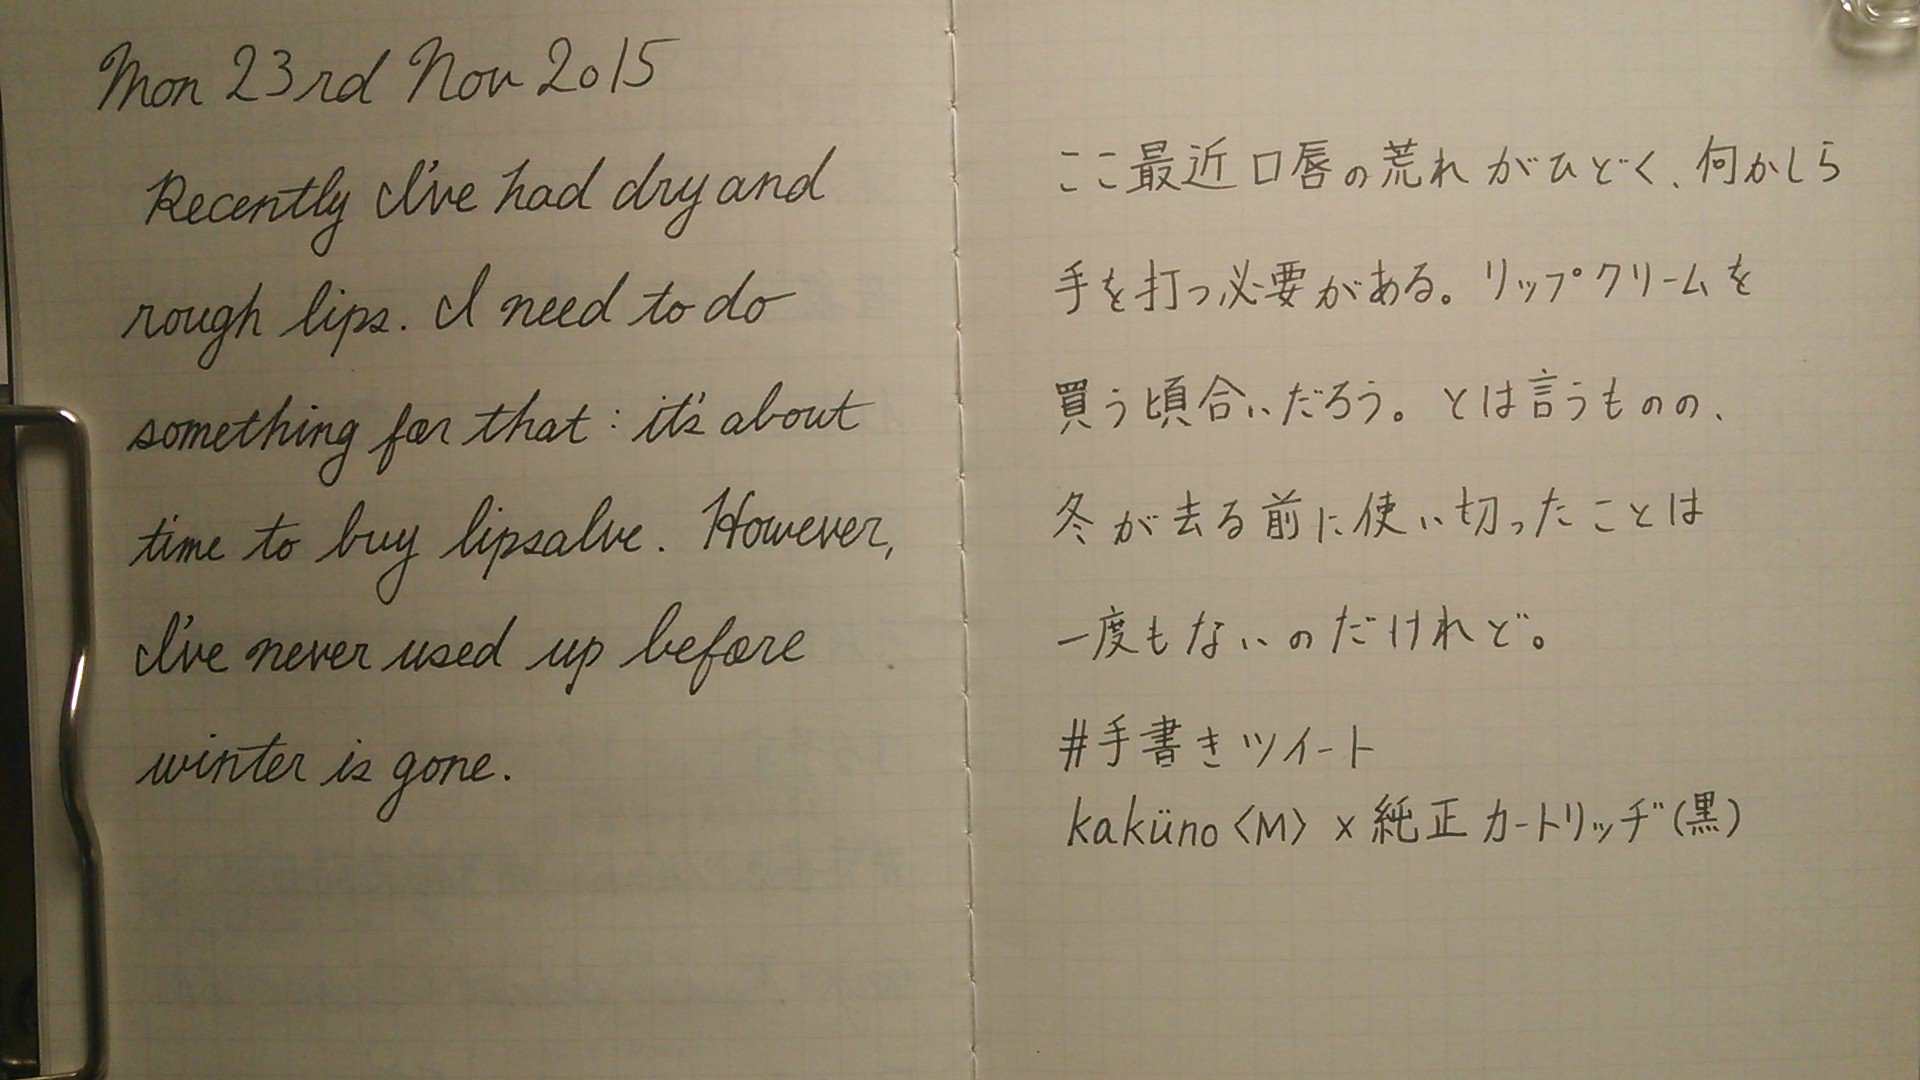 Mon 23rd Nov 2015
Recently I've had dry and
rough lips. I need to do
something for that : it's about
time to buy lipsalve. However,
I've never used up before
winter is gone.
ここ最近口唇の荒れがひどく、何かしら
手を打つ必要がある。リップクリームを
買う頃合いだろう。とは言うものの、
冬が去る前に使い切ったことは
一度もないのだけれど。
#手書きツイート
kaküno〈M〉×純正カートリッヂ(黒)